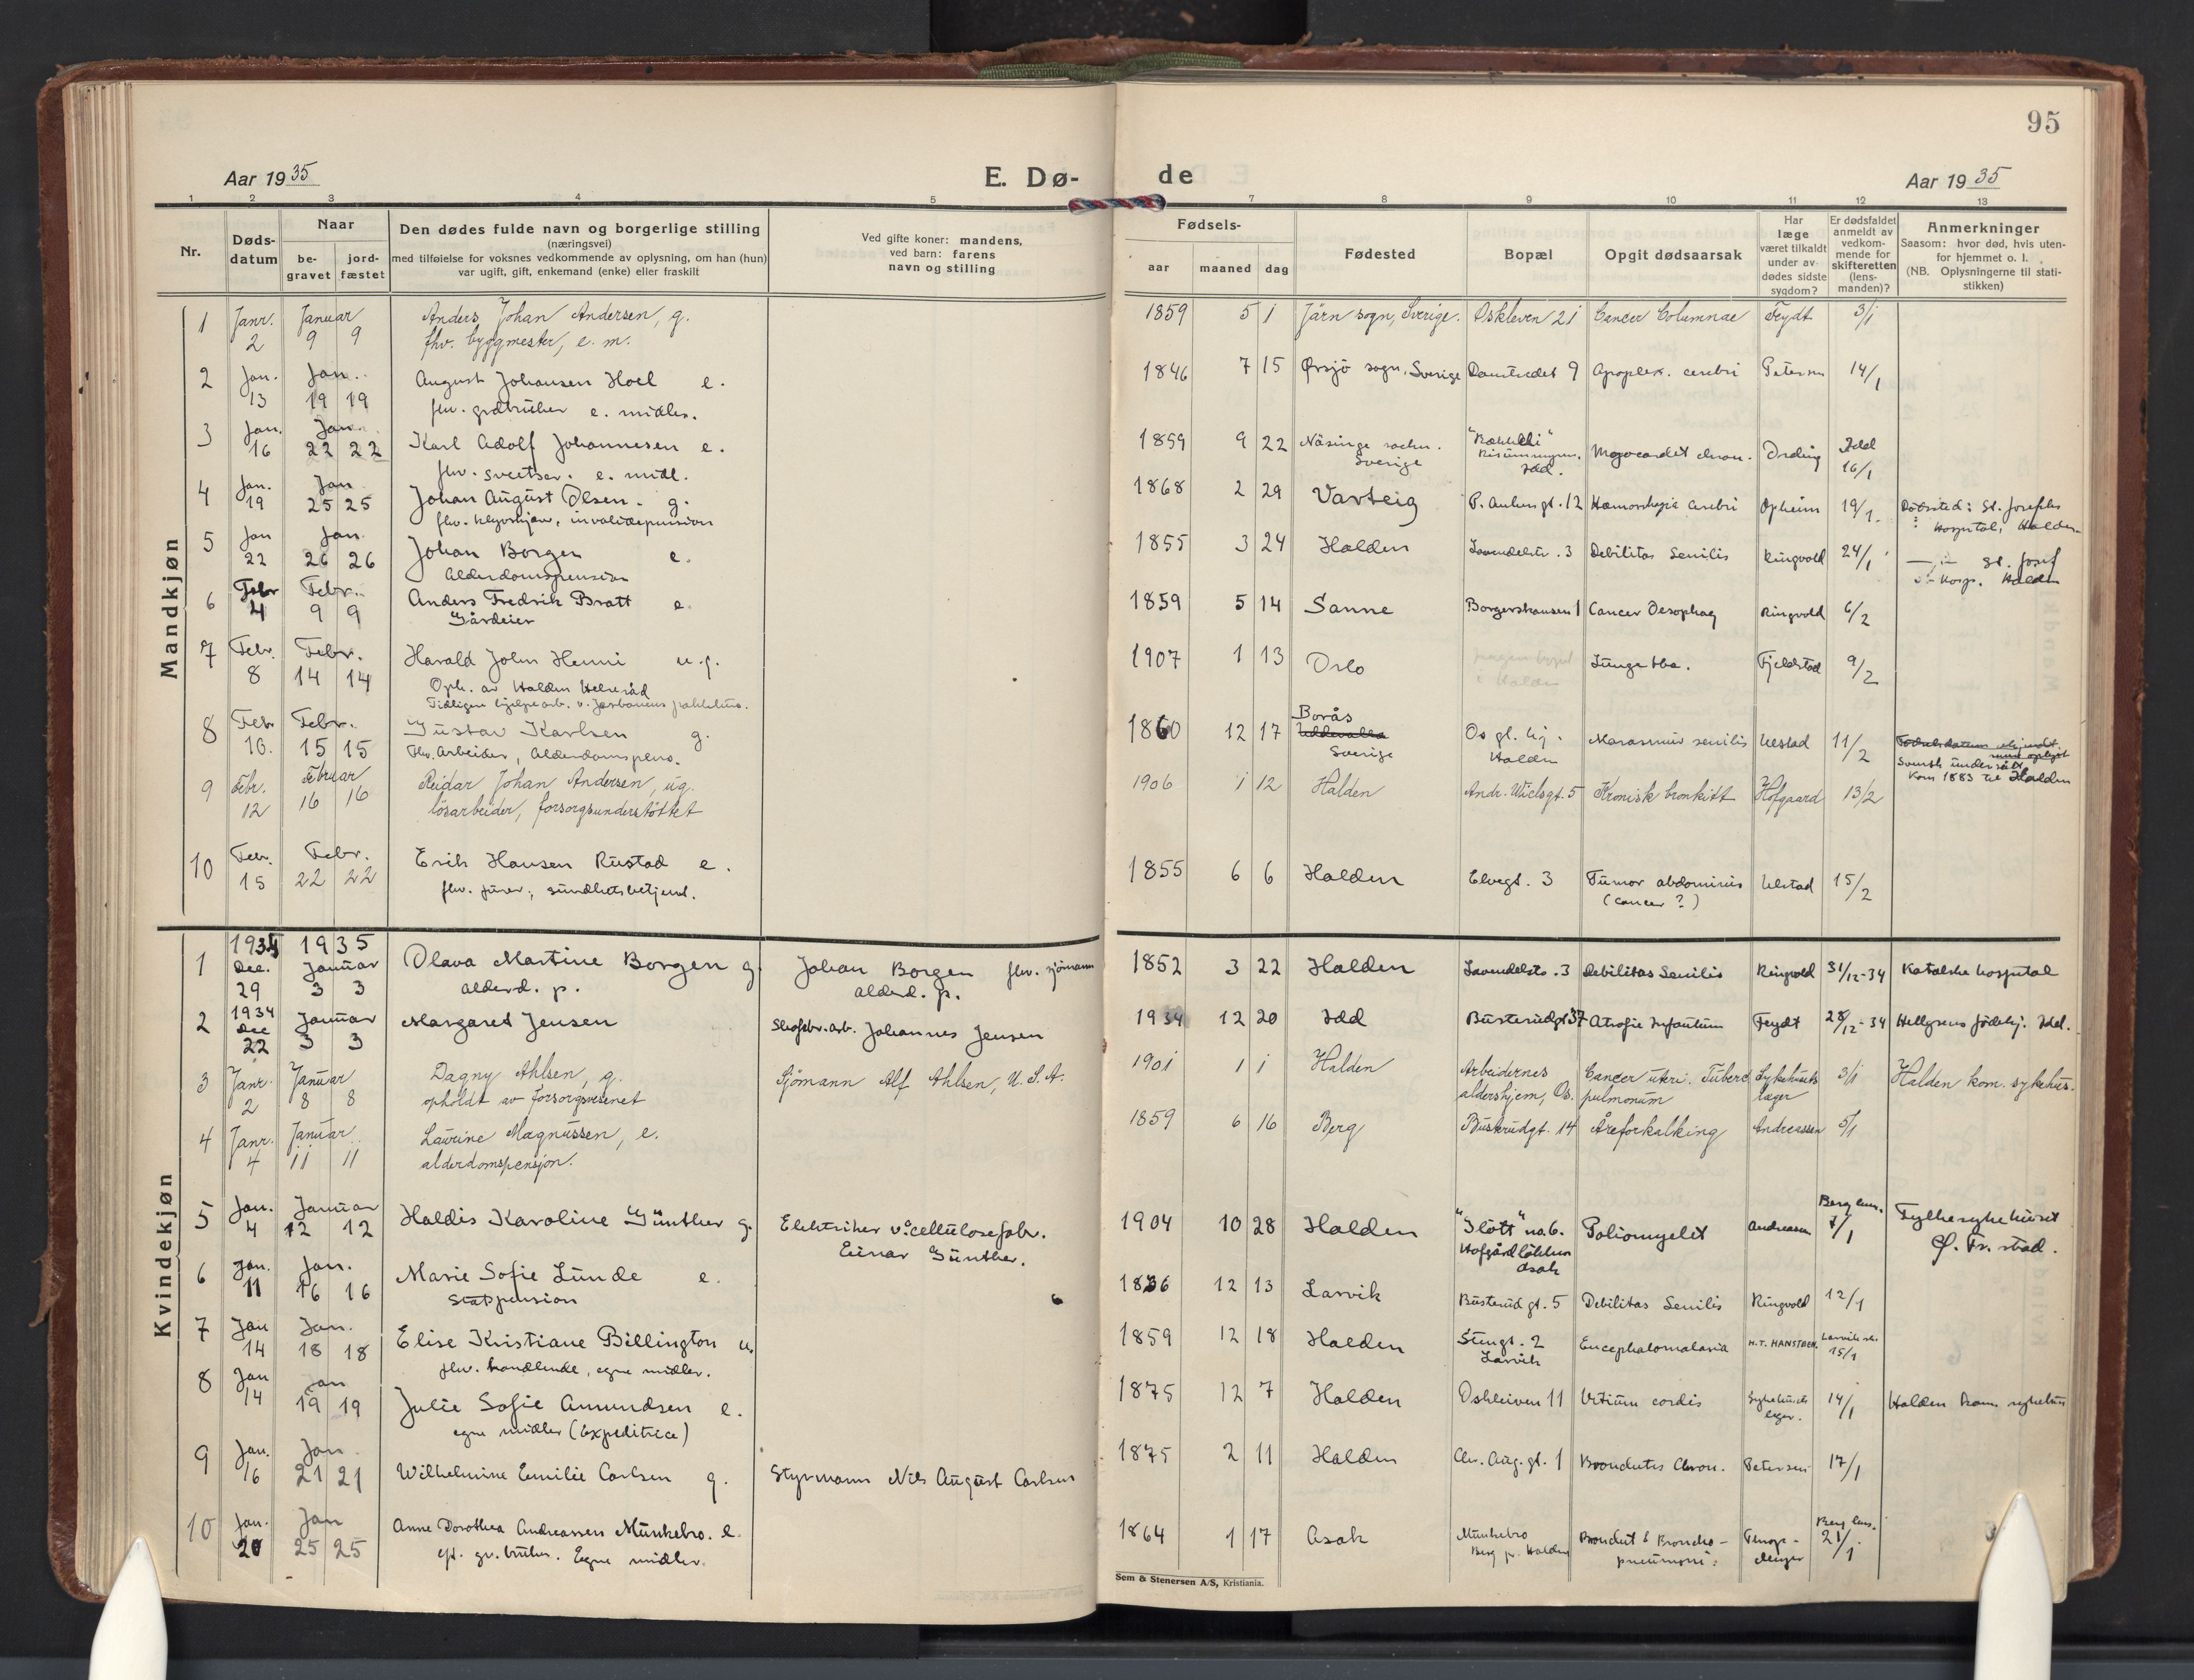 95
Aar 1935
E. Dø-
de
Aar 1935
1 2 3 4 5 7 8 9 10 11 12 13
Nr.
Døds-
datum
Naar
be-
gravet
jord-
fæstet
Den dødes fulde navn og borgerlige stilling
(næringsvei)
med tilføielse for voksnes vedkommende av oplysning, om han (hun)
var ugift, gift, enkemand (enke) eller fraskilt
Ved gifte koner: mandens,
ved barn: farens
navn og stilling
Fødsels-
aar maaned dag
Fødested
Bopæl
Opgit dødsaarsak
Har
læge
været tilkaldt
under av-
dødes sidste
sygdom?
Er dødsfaldet
anmeldt av
vedkom-
mende for
skifteretten
(lens-
manden)?
Anmerkninger
Saasom: hvor død, hvis uten-
for hjemmet o. l.
(NB. Oplysningerne til stati-
stikken)
Mandkjøn
1 Janr. Januar Anders Johan Andersen, g. 1859 5 1 Järn sogn, Sverige. Oskleven 21 Cancer Columnae Feydt 3/1
2 9 9 fhv. byggmester, e. m.
2 Jan. Jan. August Johansen Hoel e. 1846 7 15 Ørsjö sogn, Sverige Damstredet 9 Apoplex. cerebri Petersen 14/1
13 19 19 fhv. e. midler.
3 Jan. Jan. Karl Adolf Johannesen e. 1859 9 22 Näsinge Ording Idd
16 22 22 fhv. e. midl. Sverige Idd. 16/1
4 Jan. Jan Johan August Olsen. g. 1868 2 29 Varteig P. Ankers gt. 12 Hæmorrhagia cerebri Opheim 19/1. Dødssted: St. Josephs
19 25 25 fhv. invalidepension Hospital, Halden
5 Jan Jan. Johan Borgen e. 1855 3 24 Halden Lavendelstr. 3 Debilitas Senilis Ringvold 24/1 St. Josef
22 26 26 Alderdomspension Hosp. Halden
6 Febr Febr. Anders Fredrik Bratt e. 1859 5 14 Sanne Borgershausen 1 Cancer Oesophag Ringvold 6/2
4 9 9 Gårdeier
7 Febr. Febr. Harald John Henni u.g. 1907 1 13 Oslo Lunge tbc. Fjeldstad 9/2
8 14 14 Oph. av Halden Helseråd i Halden
Tidligere hjelpearb. v. Jernbanens pakkhus.
8 Febr Febr. Gustav Karlsen g. 1860 12 17 Borås Os gl. hj. Marasmus senilis Ulstad 11/2
10. 15 15 Fhv. Arbeider, Alderdomspens. Uddevalla Sverige Halden
Svensk undersått
Kom 1883 til Halden
9 Febr. Februar Reidar Johan Andersen, ug. 1906 1 12 Halden Andr. Wielsgt. 5 Kronisk bronkitt Hofgaard 13/2
12 16 16 lösarbeider, forsorgsunderstöttet
10 Febr. Febr. Erik Hansen Rustad e. 1855 6 6 Halden Elvegt. 3 Tumor abdominis Ulstad 15/2
15 22 22 fhv. fürer, sundhetsbetjent. (cancer ?)
Kvindekjøn
1 1934 1935 Olava Martine Borgen g. Johan Borgen fhv. sjömann 1852 3 22 Halden Lavendelstr. 3 Debilitas Senilis Ringvold 31/12-34 Katolske hospital
Dec. Januar alderd. p. alderd. p.
29 3 3
2 1934 Januar Margaret Jensen Skofabr.arb. Johannes Jensen 1934 12 20 Idd Busterudgt 37 Atrofie Infantum Feydt 28/12-34 Hellgrens födehj. Idd.
Dec
22 3 3
3 Janr. Januar Dagny Ahlsen, g. Sjömann Alf Ahlsen, U.S.A. 1901 1 1 Halden Arbeidernes Cancer uteri. Tuberc. Sykehusets 3/1 Halden kom. sykehus.
2 8 8 opholdt av forsorgsvesenet aldershjem, Os. pulmonum læger
4 Janr. Januar Laurine Magnussen, e. 1859 6 16 Berg Busterudgt. 14 Åreforkalking Andreassen 5/1
4 11 11 alderdomspensjon.
5 Jan. Januar Haldis Karoline Günther g. Elektriker v. cellulosefabr. 1904 10 28 Halden "Slött" no 6. Poliomyelit Andreassen Berg lens. 7/1 Fylkesykehuset
4 12 12 Einar Günther. Hofgårdlökken Asak Ø. Fr. stad.
6 Jan. Jan. Marie Sofie Lunde e. 1836 12 13 Larvik Busterud gt. 5 Debilitas Senilis Ringvold 12/1
11 16 16 Statspension
7 Jan Jan. Elise Kristiane Billington u. 1859 12 18 Halden Stengt. 2 Encephalomalasia H.T. HANSTEEN. Larvik sk.
14 18 18 fhv. handlende, egne midler. Larvik 15/1
8 Jan Jan Julie Sofie Amundsen e. 1875 12 7 Halden Oskleiven 11 Vitium cordis Sykehusets 14/1 Halden kom. sykehus
14 19 19 egne midler (Expeditrice) læger.
9 Jan. Jan. Wilhelmine Emilie Carlsen g. Styrmann Nils August Carlsen 1875 2 11 Halden Chr. Aug. gt. 1 Bronchitis Chron. Petersen 17/1
16 21 21
10 Jan. Jan Anne Dorothea Andreassen Munkebro. e. 1864 1 17 Asak Munkebro Berg lens.
20 25 25 Egne midler. Berg pr. Halden pneumoni 21/1
Sem & Stenersen A/S, Kristiania.